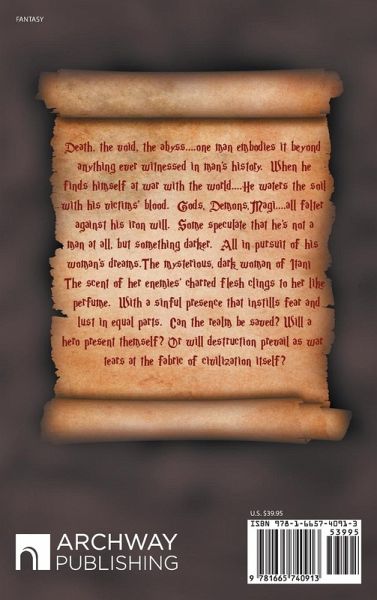 FANTASY
Death, the void, the abyss....one man embodies it beyond
anything ever witnessed in man's history. When he
finds himself at war with the world....He waters the soil
with his victims' blood. Gods, Demons,Magi....all falter
against his iron will. Some speculate that he's not a
man at all, but something darker. All in pursuit of his
woman's dreams.The mysterious, dark woman of Itani
The scent of her enemies' charred flesh clings to her like
perfume. With a sinful presence that instills fear and
lust in equal parts. Can the realm be saved? Will a
hero present themself? Or will destruction prevail as war
tears at the fabric of civilization itself?
U.S. $39.95
ISBN 978-1-6657-4091-3
53995
9 781665 740913
ARCHWAY
PUBLISHING